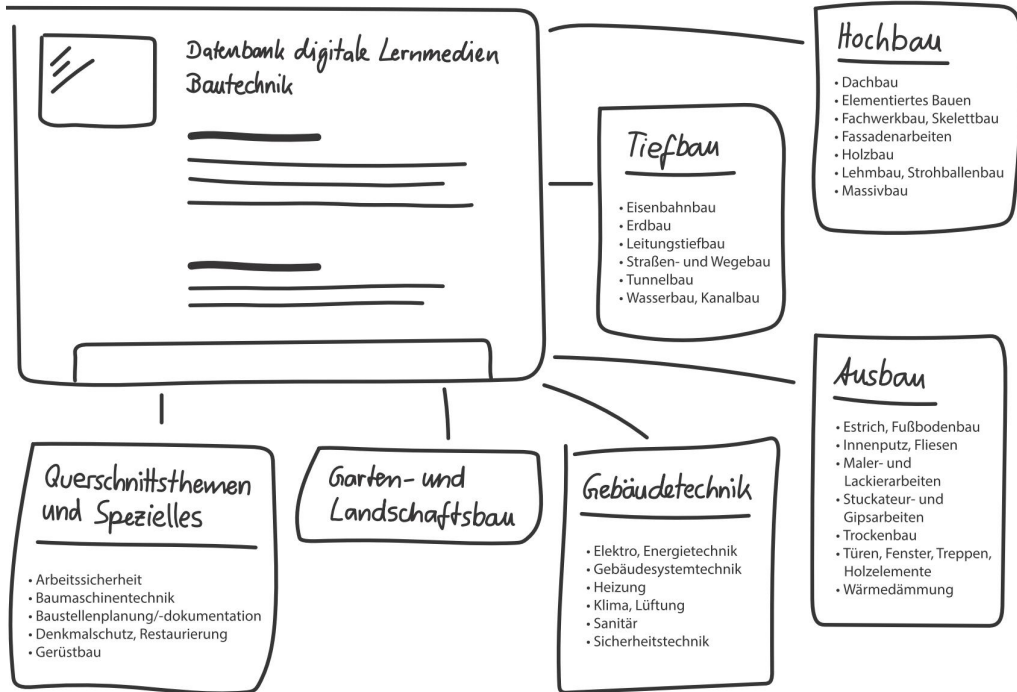 Datenbank digitale Lernmedien
Bautechnik
Hochbau
• Dachbau
• Elementiertes Bauen
• Fachwerkbau, Skelettbau
• Fassadenarbeiten
• Holzbau
• Lehmbau, Strohballenbau
• Massivbau
Tiefbau
• Eisenbahnbau
• Erdbau
• Leitungstiefbau
• Straßen- und Wegebau
• Tunnelbau
• Wasserbau, Kanalbau
Ausbau
• Estrich, Fußbodenbau
• Innenputz, Fliesen
• Maler- und
Lackierarbeiten
• Stuckateur- und
Gipsarbeiten
• Trockenbau
• Türen, Fenster, Treppen,
Holzelemente
• Wärmedämmung
Querschnittsthemen
und Spezielles
• Arbeitssicherheit
• Baumaschinentechnik
• Baustellenplanung/-dokumentation
• Denkmalschutz, Restaurierung
• Gerüstbau
Garten- und
Landschaftsbau
Gebäudetechnik
• Elektro, Energietechnik
• Gebäudesystemtechnik
• Heizung
• Klima, Lüftung
• Sanitär
• Sicherheitstechnik